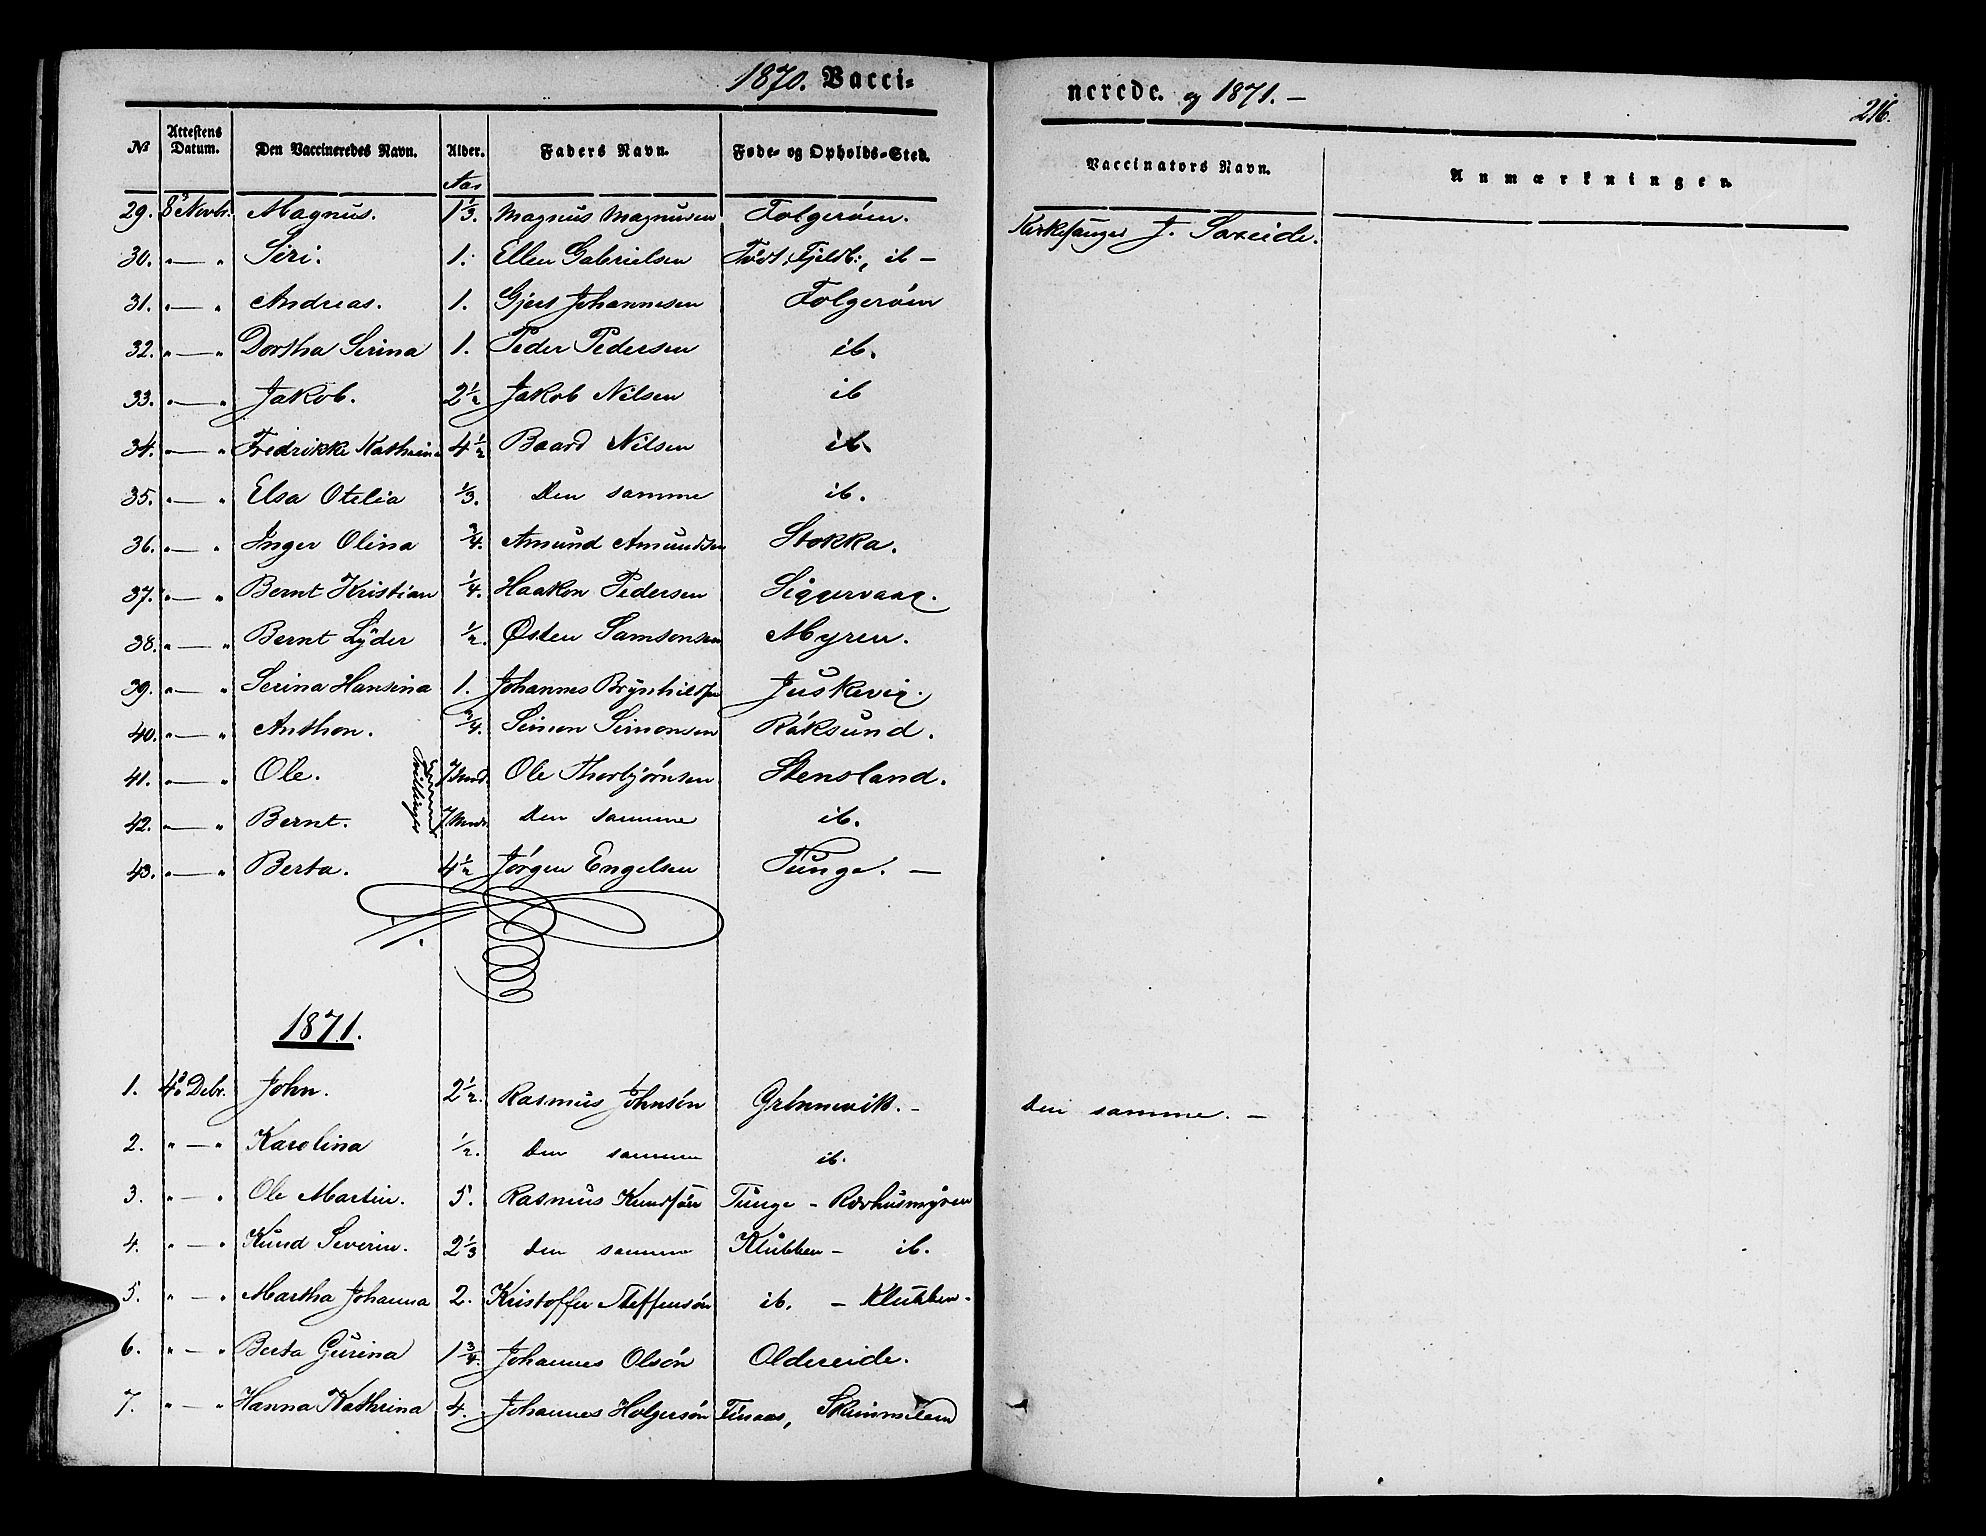 1870. Vacci-
nerede. og 1871. —
216.
No Attestens Datum. Den Vaccineredes Navn. Alder. Faders Navn. Føde- og Opholds-Sted. Vaccinators Navn. Anmærkninger.
Aar
29. 8de Novbr. Magnus. 1 1/3. Magnus Magnusen Folgerøen. Kirkesanger J. Saxeide.
30. " — " Siri. 1. Ellen Gabrielsen Født: Fjeldb:, ib —
31. " — " Andreas. 1. Gjert Johannesen Folgerøen
32. " — " Dortha Serina 1. Peder Pedersen ib.
33. " — " Jakob. 2 1/2 Jakob Nilsen ib
34. " — " Fredrikke Kathrina 4 1/2 Baard Nilsen ib.
35. " — " Elsa Otelia 1/3. Den samme ib.
36. " — " Inger Olina 3/4. Amund Amundsen Stokka.
37. " — " Bernt Kristian 1/4. Haakon Pedersen Siggervaag.
38. " — " Bernt Lyder 1/2. Østen Samsonsen Myren.
39. " — " Serina Hansina 1. Johannes Brynhildsen Juskevig.
40. " — " Anthon. 3/4. Simon Simonsen Röksund.
41. " — " Ole. 7 Mnd. Ole Thorbjørnsen Stensland.
Tvillinger
42. " — " Bernt. 7 Mndr. Den samme ib.
43. " — " Berta. 4 1/2 Jørgen Engelsen Tunge. —
1871.
1. 4de Debr. John. 2 1/2. Rasmus Johnsön Grönnevik. — Den samme. —
2. " — " Karolina 1/2. Den samme ib.
3. " — " Ole Martin. 5. Rasmus Knudsön Tunge — Rovhusmyren
4. " — " Knud Severin. 2 1/3 Den samme Klubben — ib.
5. " — " Martha Johanna 2. Kristoffer Steffensön ib. — Klubben —
6. " — " Berta Gurina 1 3/4. Johannes Olsön Oldereide.
7. " — " Hanna Kathrina 4. Johannes Holgersön